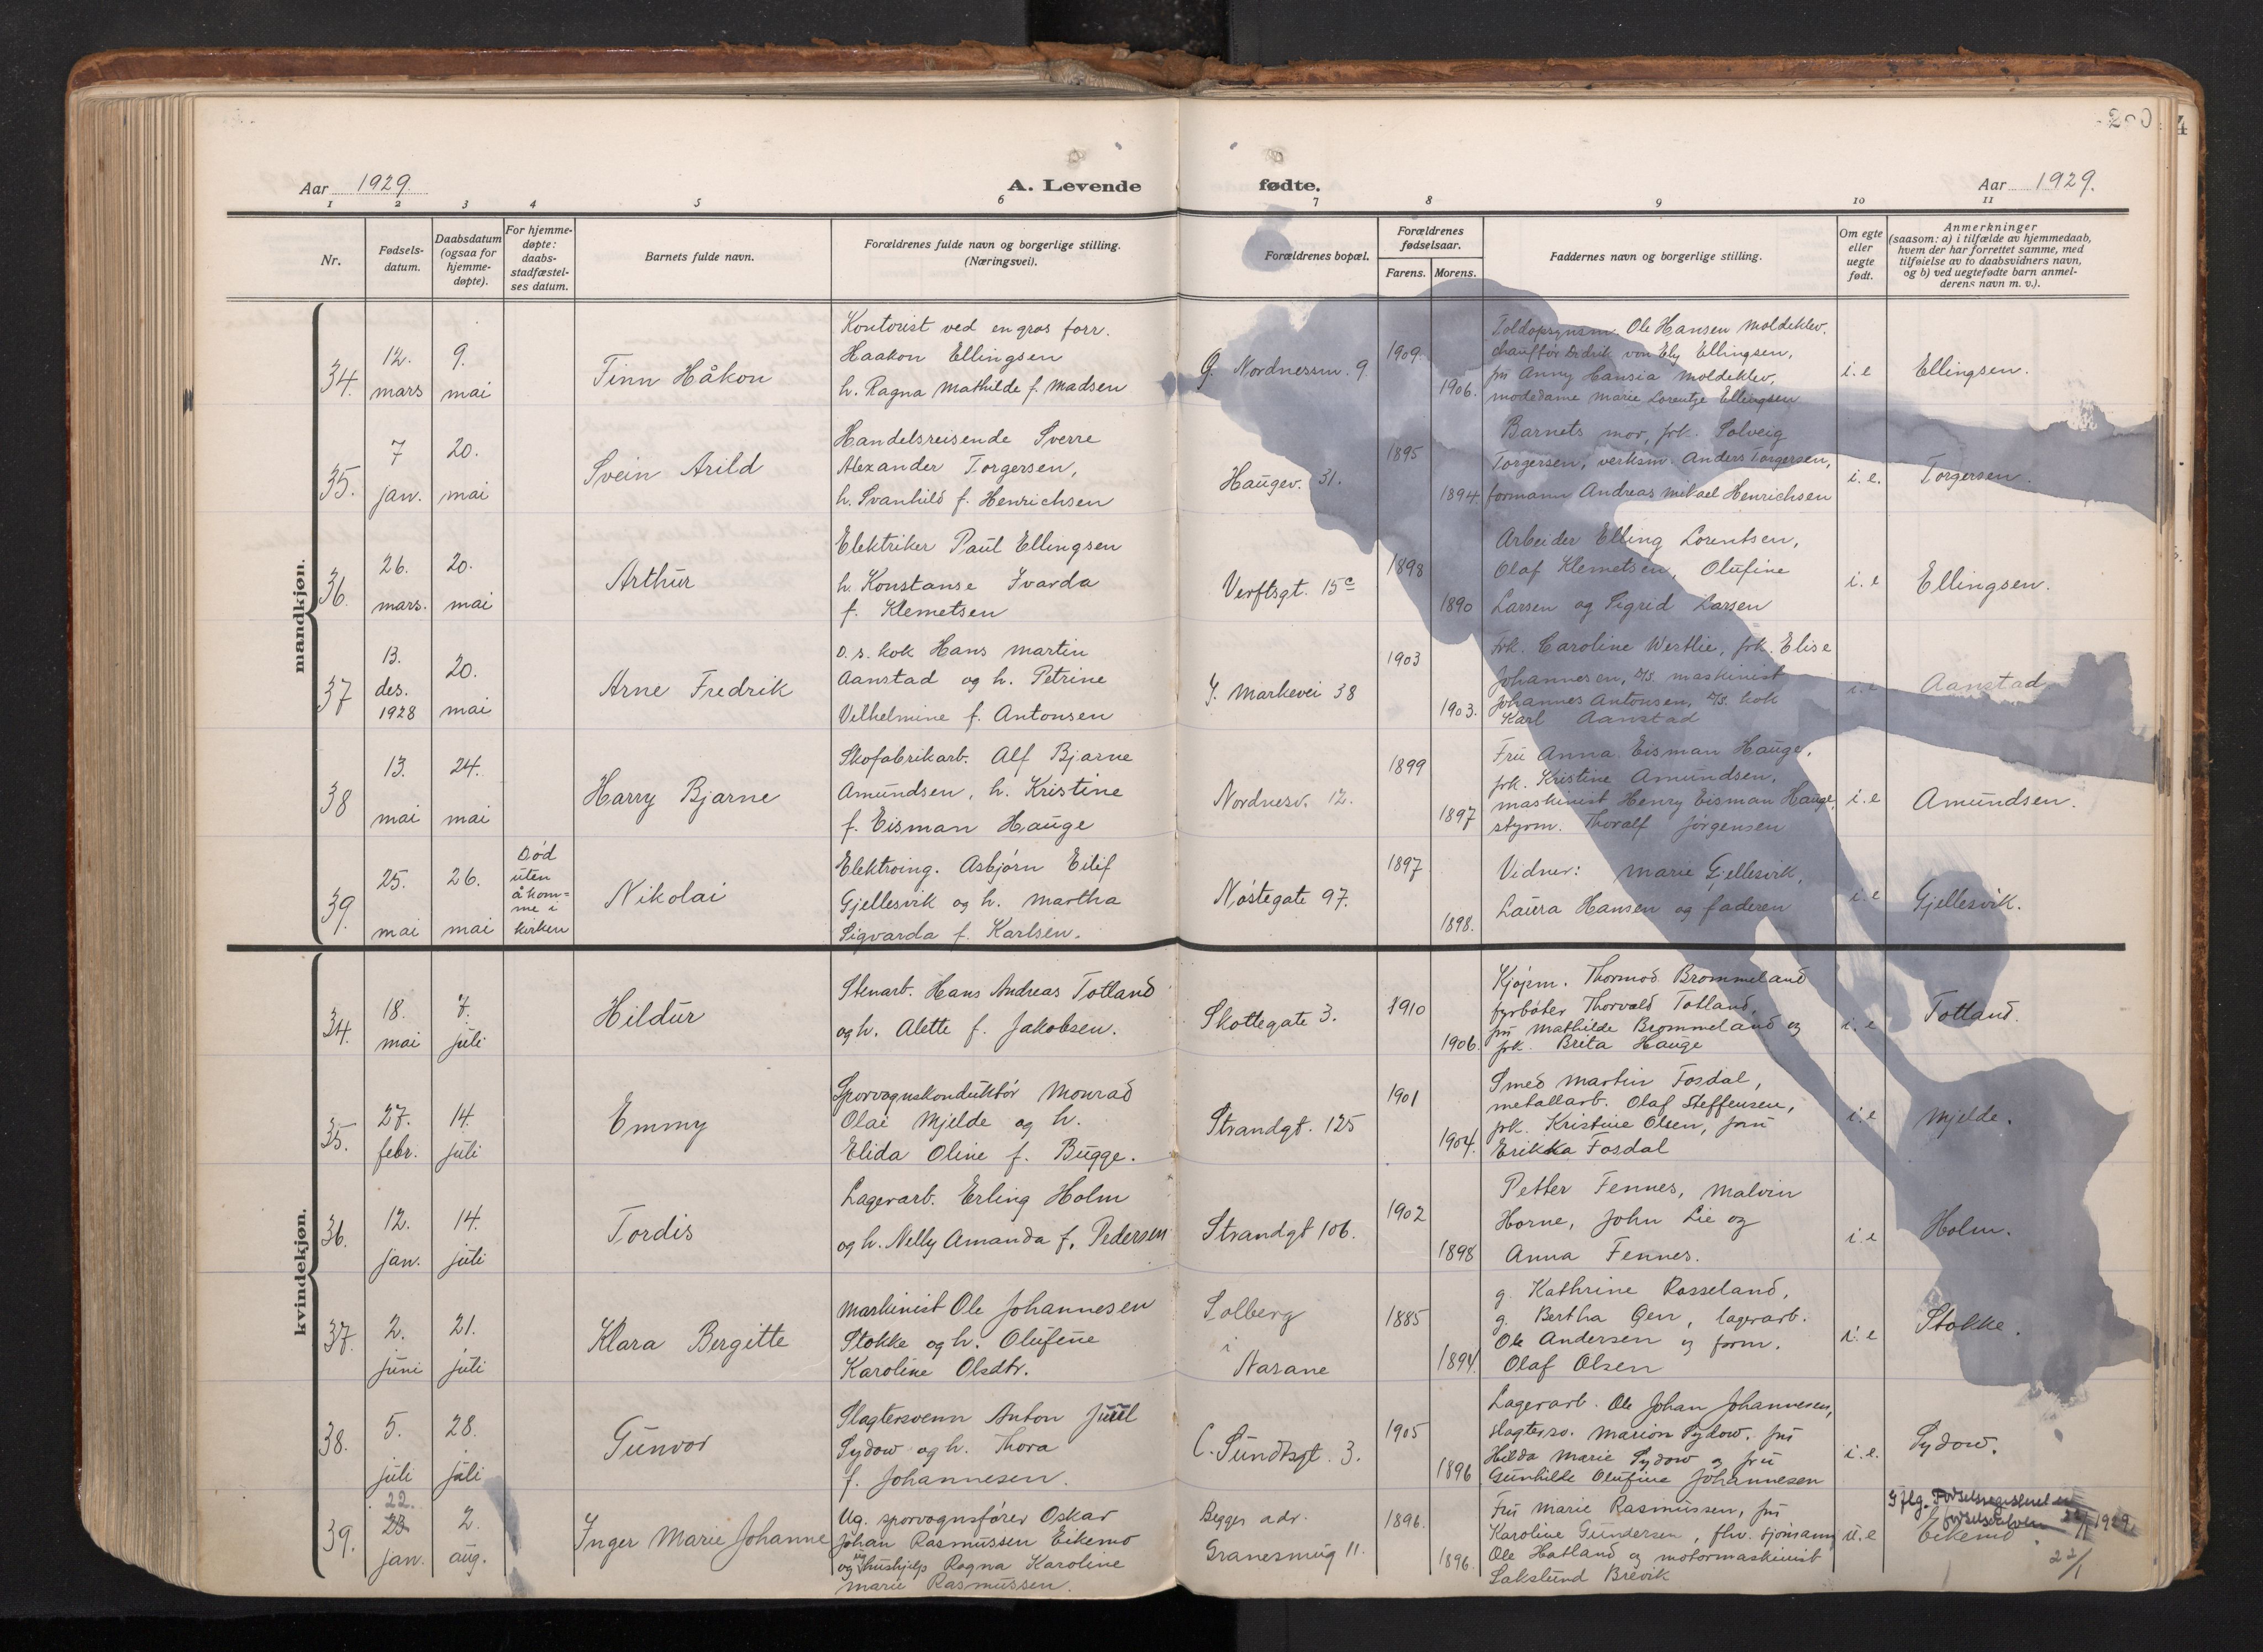 Aar 1929.
A. Levende fødte.
Aar 1929.
1 2 3 4 5 6 7 8 9 10 11
Nr.
Fødsels-
datum.
Daabsdatum
(ogsaa for
hjemme-
døpte).
For hjemme-
døpte:
daabs-
stadfæstel-
ses datum.
Barnets fulde navn.
Forældrenes fulde navn og borgerlige stilling.
(Næringsvei).
Forældrenes bopæl.
Forældrenes
fødselsaar.
Farens. Morens.
Faddernes navn og borgerlige stilling.
Om egte
eller
uegte
født.
Anmerkninger
(saasom: a) i tilfælde av hjemmedaab,
hvem der har forrettet samme, med
tilføielse av to daabsvidners navn,
og b) ved uegtefødte barn anmel-
derens navn m. v.).
mandkjøn.
34.
12.
mars
9.
mai
Finn Håkon
Kontorist ved engros forr.
Haakon Ellingsen
h. Ragna Mathilde f. Madsen
G. Nordnessm. 9
1909.
1906.
Toldopsynsm. Ole Hansen Moldeklev.
chauffør Didrik von Ely Ellingsen,
fru Anny Hansia Moldeklev,
modedame Marie Lorentze Ellingsen
i. e
Ellingsen.
35.
7
jan.
20.
mai
Svein Arild
Handelsreisende Sverre
Alexander Torgersen,
h. Svanhild f. Henrichsen
Haugev. 31.
1895
1894.
Barnets mor, frk. Solveig
Torgersen, verksm. Anders Torgersen,
formann Andreas Mikael Henrichsen
i. e.
Torgersen.
36.
26.
mars.
20.
mai
Arthur
Elektriker Paul Ellingsen
h. Konstanse Ivarda
f. Klemetsen
Verftsgt. 15c
1898
1890
Arbeider Elling Lorentsen,
Olaf Klemetsen, Olufine
Larsen og Sigrid Larsen
i. e
Ellingsen.
37
13.
des.
1928
20.
mai
Arne Fredrik
D. s. kok Hans Martin
Aanstad og h. Petrine
Velhelmine f. Antonsen
Y. Markevei 38
1903
1903.
Frk. Caroline Westlie, frk. Elise
Johannesen, D/S. maskinist
Johannes Antonsen, D/S. kok
Karl Aanstad
i. e
Aanstad
38
13.
mai
24.
mai
Harry Bjarne
Skofabrikarb. Alf Bjarne
Amundsen, h. Kristine
f. Eisman Hauge
Nordnesv. 12.
1899
1897
Fru Anna Eisman Hauge,
frk. Kristine Amundsen,
maskinist Henry Eisman Hauge,
styrm. Thoralf Jørgensen
i. e
Amundsen.
39.
25.
mai
26.
mai
Død
uten
å kom=
me i
kirken
Nikolai
Elektroing. Asbjørn Eilif
Gjellesvik og h. Martha
Sigvarda f. Karlsen.
Nøstegate 97.
1897
1898.
Vidner: Marie Gjellesvik,
Laura Hansen og faderen
i. e
Gjellesvik.
kvindekjøn.
34.
18.
mai
7.
juli
Hildur
Stenarb. Hans Andreas Totland
og h. Alette f. Jakobsen.
Skottegate 3.
1910
1906.
Kjøpm. Thormod Brommeland
fyrbøter Thorvald Totland,
fru Mathilde Brommeland og
frk. Brita Hauge
i. e
Totland.
35.
27.
febr.
14.
juli
Emmy
Sporvognskonduktør Monrad
Olai Mjelde og h.
Elida Oline f. Bugge.
Strandgt. 125
1901
1904.
Smed Martin Fosdal,
metallarb. Olaf Steffensen,
frk. Kristine Olsen, fru
Erikka Fosdal
i. e
Mjelde.
36.
12.
jan.
14.
juli
Tordis
Lagerarb. Erling Holm
og h. Nelly Amanda f. Pedersen
Strandgt 106.
1902
1898
Petter Fennes, Malvin
Horne, John Lie og
Anna Fennes.
i. e
Holm.
37.
2.
juni
21.
juli
Klara Bergitte
Maskinist Ole Johannesen
Stokke og h. Olufine
Karoline Olsdtr.
Solberg
i
Narane
1885
1894.
g. Kathrine Rosseland,
g. Bertha Gen, lagerarb.
Ole Andersen og form.
Olaf Olsen
i. e
Stokke.
38.
5.
juli
28.
juli
Gunvor
Slagtersvenn Anton Juul
Sydow og h. Thora
f. Johannesen.
C. Sundtsgt. 3.
1905
1896
Lagerarb. Ole Johan Johannesen,
slagtersv. Marion Sydow. fru
Hilda Marie Sydow og fru
Gunhilde Olufine Johannesen
i. e.
Sydow.
39.
22.
23
jan.
2.
aug.
Inger Marie Johanne
Ug. sporvognsfører Oskar
Johan Rasmussen Eikemo
og ug hushjelp Ragna Karoline
Marie Rasmussen.
Begges adr.
Granesmug 11.
1896.
1896.
Fru Marie Rasmussen, fru
Karoline Gundersen, fhv. sjømann
Ole Hatland og motormaskinist
Lakslund Brevik
u. e
Iflg. Fødselsregisteret er
fødselsdatoen 22/1 1929.
Eikemo.
22/1